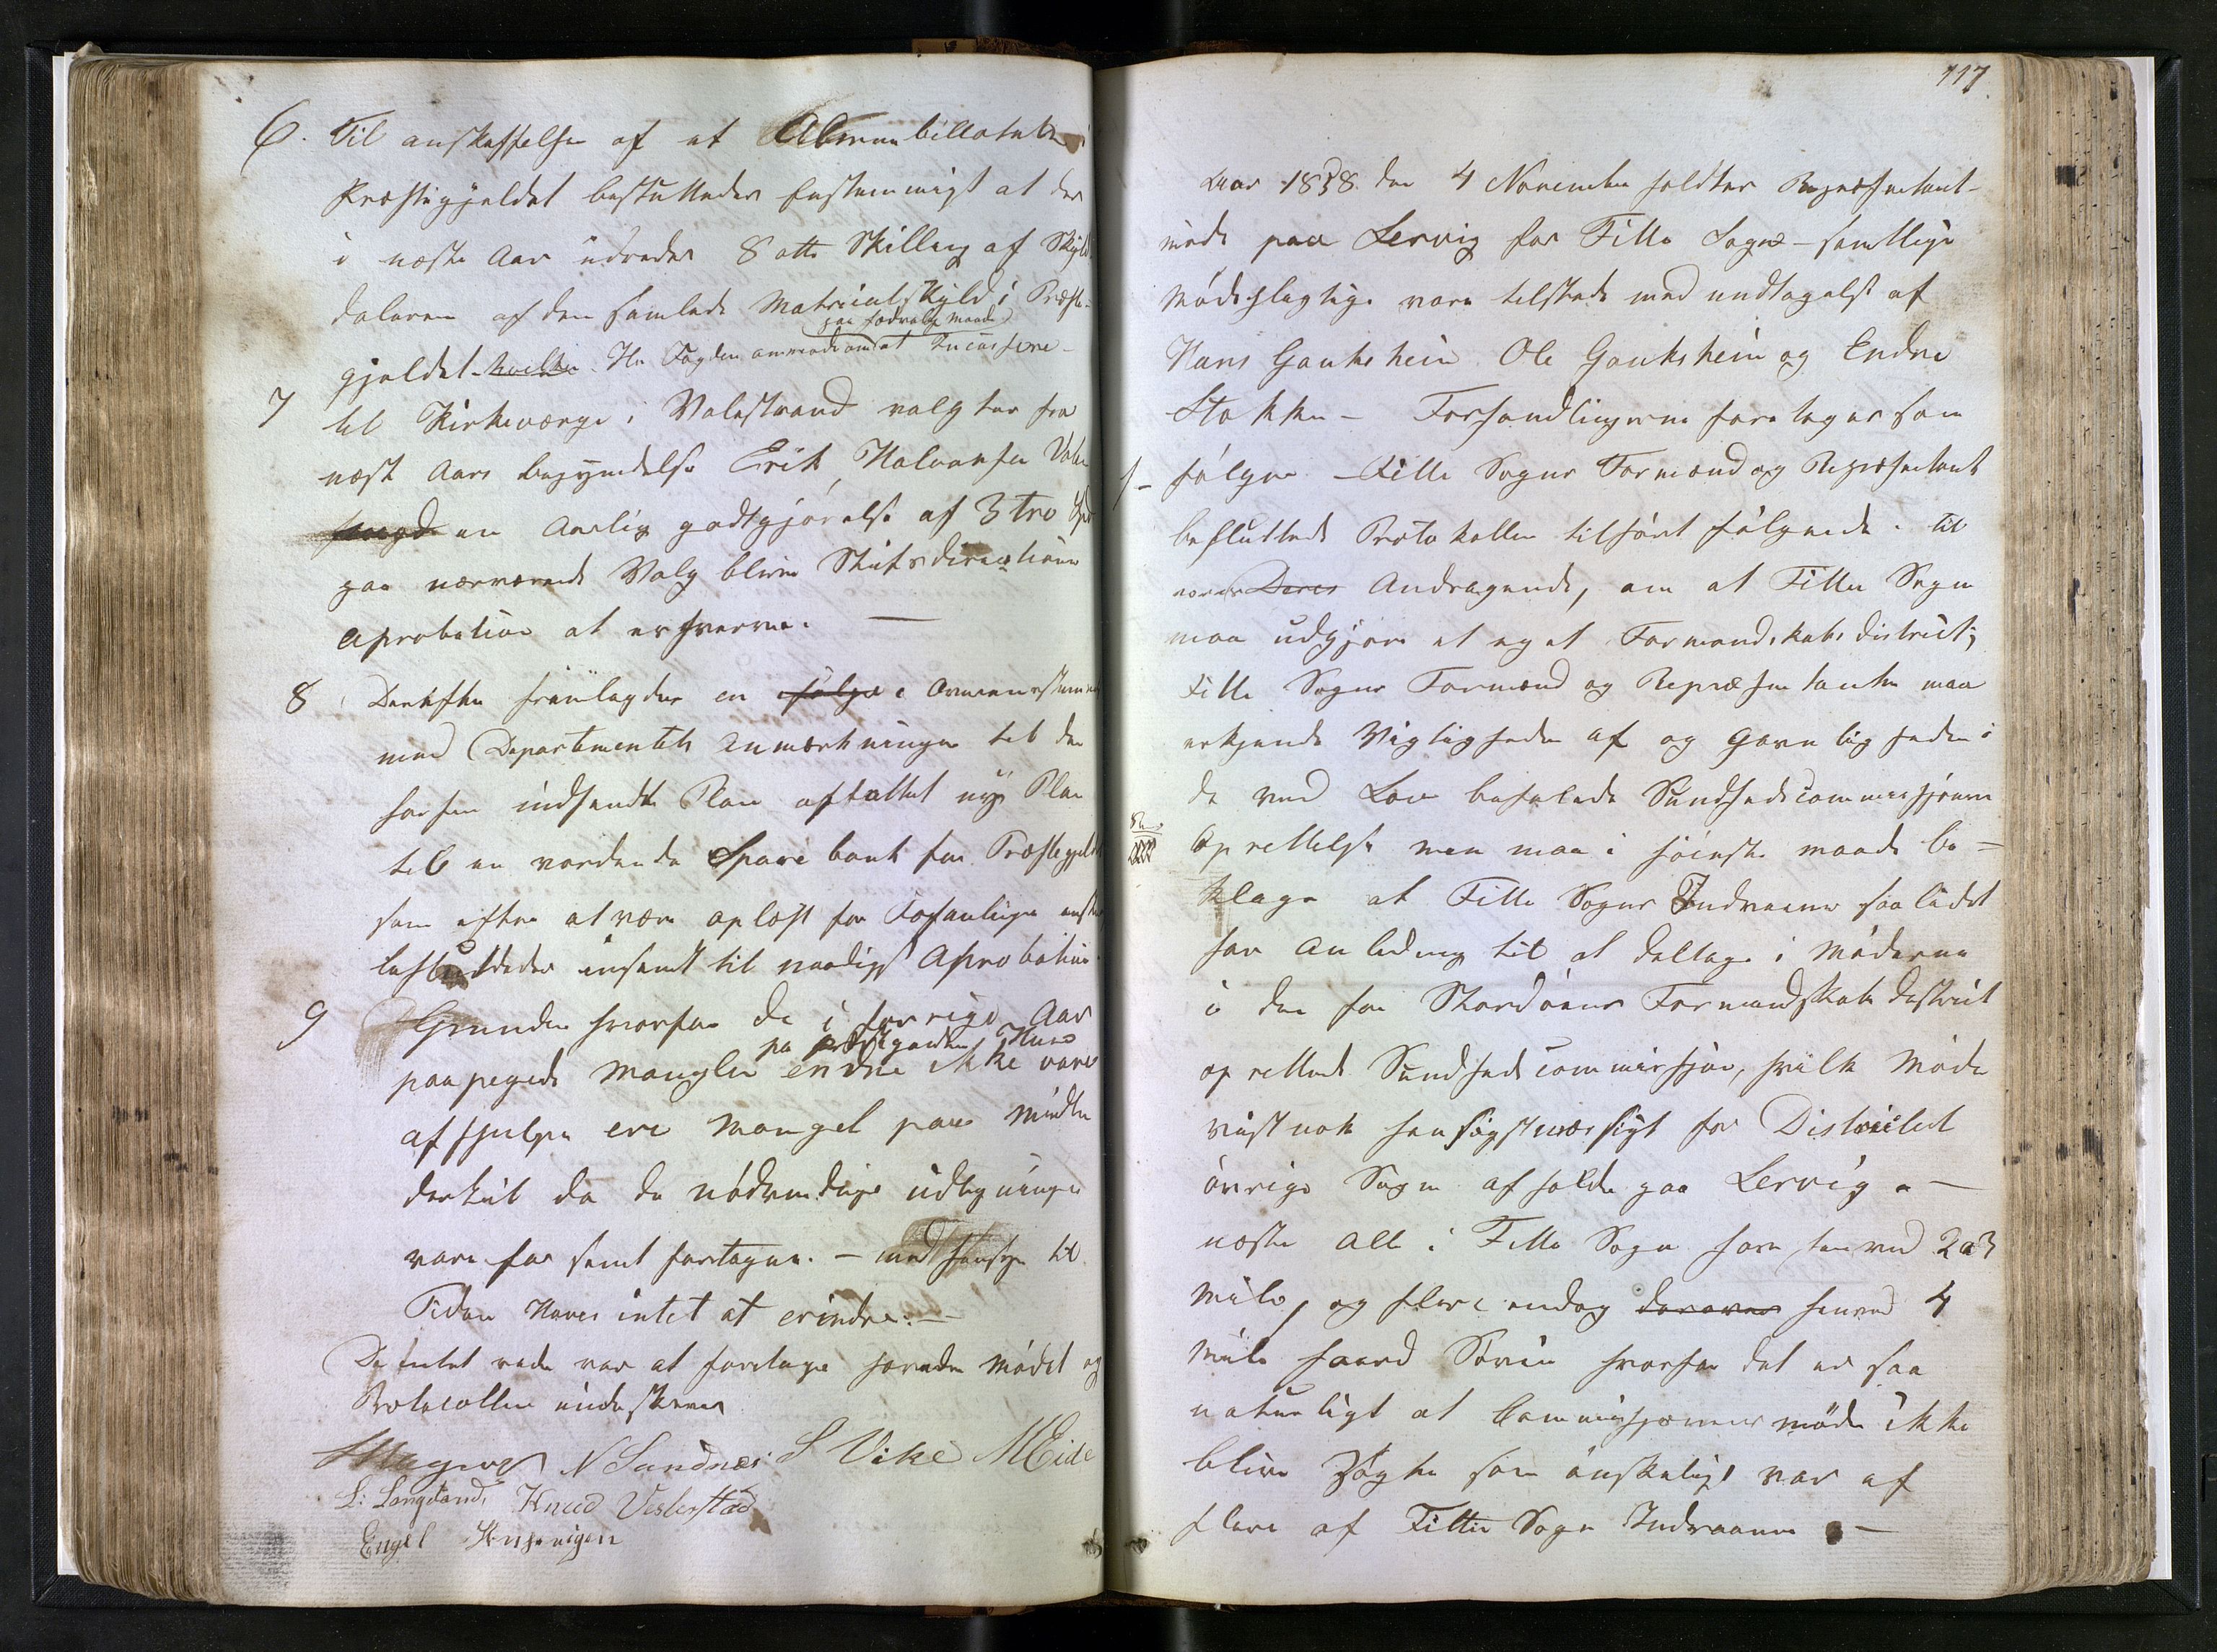 6. Til anskaffelsen af et Almuebibliothek i
Præstegjeldet besluttedes eenstemmigt at der
i næste Aar udredes 8 otte Skilling af Skyld-
daleren af den samlede Matriculskyld i Præste-
paa sædvanlig Maade
gjeldet. hvilke Hr Fogden anmodes om at Incassere
7 til Kirkeværge i Valestrand valgtes fra
næst Aars begyndelse Erik Halvorsen Vale
en Aarlig godtgjørelse af 3 tre Spd
paa nærværende Valg blive Stiftsdirectionens
Aprobation at erhverve. —
8 Derefter fremlagdes en ifølge i overensstemmelse
med Departementets Anmærkninger til den
forhen indsendte Plan affattet nye Plan
til en vordende Sparebank for Præstegjeldet
som efter at være oplæst for Forsamlingen eenst
besluttedes insendt til naadigst Aprobation
9 Grunden hvorfor de i forrige Aar
pa Præstgaardens Huse
paapegede Mangler endnu ikke vare
afhjulpne ere Mangel paa Midler
dertil da de nødvendige udligninger
vare for seent foretagne. — med hensyn til
Tiden Haves intet at erindre. —
Da intet videre var at foretage hævedes Mødet og
Protocollen underskreven
N Sandnæs S Vike M Eide
L: Langeland, Knud Vesterstad
Engel
117.
Aar 1838 den 4 November holdtes Repræsentant-
møde paa Lervig for Fitie Sogn – samtlige
Mødepligtige vare tilstede med undtagelse af
Hans Gouksheim Ole Gouksheim og Endre
Stokken – Forhandlingerne foretoges som
1 – følger – Fitie Sogns Formænd og Repræsentant
besluttede Protokollen tilført følgende. til
vores Deres Andragende, om at Fitie Sogn
maa udgjøre et eget Formandskabs district;
Fitie Sogns Formænd og Repræsentanter maa
erkjende Vigtigheden af og Gavnligheden i
de ved Lov befalede Sundhedscommissjoners
Oprettelse men maa i høieste maade be-
klage at Fitie Sogns Indvaanere saa lidet
har Anledning til at deltage i Møderne
i den for Stordøens Formandskabs district
oprettede Sundhedscommissjon, hvilke Møder
vistnok hensigtsmæssigt for Districtets
øvrige Sogne afholdes paa Lervig –
næsten Alle i Fitie Sogn have henved 2 a 3
Mile, og flere endog derover henved 4
Mile haard Søvei hvorfor det er saa
naturligt at Commissjonens møder ikke
blive søgte som ønskeligt var af
flere af Fitie Sogns Indvaanere –